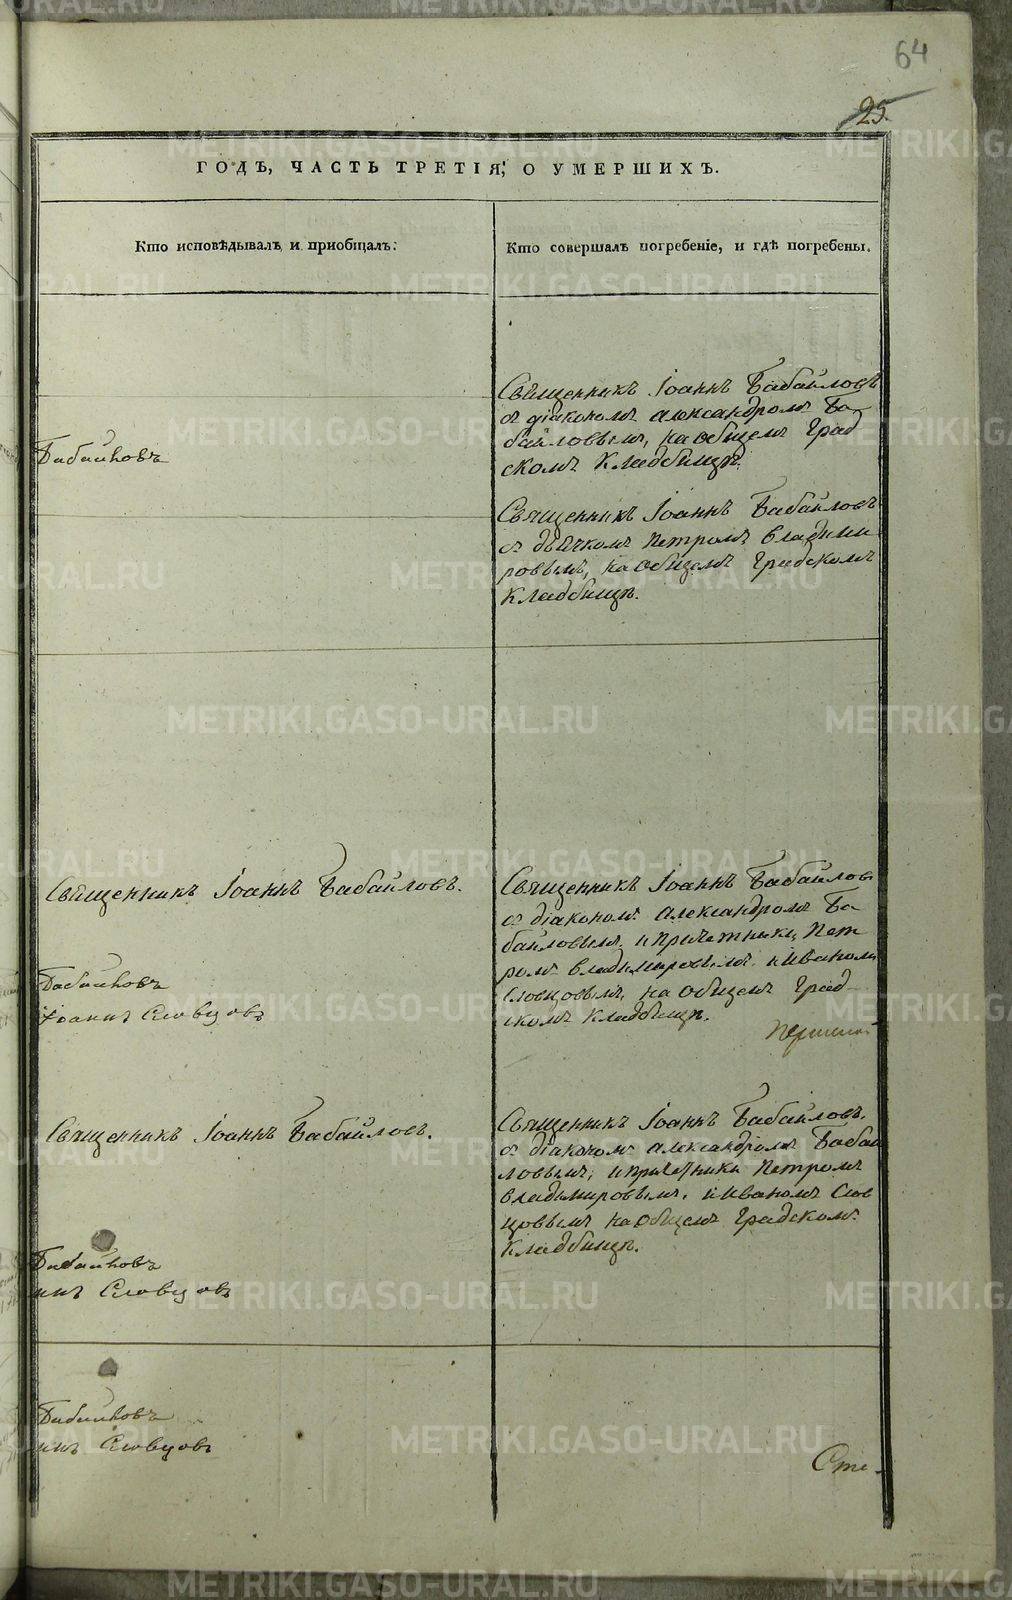 64
25.
ГОДЪ, ЧАСТЬ ТРЕТІЯ, О УМЕРШИХЪ.
Кто исповѣдывалъ и приобщалъ:
Кто совершалъ погребеніе, и гдѣ погребены.
Священникъ Іоаннъ Бабайловъ
съ діакономъ Александромъ Ба-
байловымъ, на общемъ Град
скомъ кладбищѣ.
Бабайловъ
Священникъ Іоаннъ Бабайловъ
съ дьячкомъ Петромъ Владими
ровымъ, на общемъ Градскомъ
кладбищѣ.
Священникъ Іоаннъ Бабайловъ.
Священникъ Іоаннъ Бабайлов
съ діакономъ Александромъ Ба-
байловымъ и причетники, Пет
ромъ Владимировымъ и Иваномъ
Словцовымъ, на общемъ Град-
скомъ кладбищѣ.
Бабайловъ
Іоаннъ Словцовъ
Священникъ Іоаннъ Бабайловъ.
Священникъ Іоаннъ Бабайловъ.
съ діакономъ Александромъ Бабай
ловымъ, и причетники Петромъ
Владимировымъ, и Иваномъ Слов
цовымъ на общемъ Градскомъ
кладбищѣ.
Бабайловъ
ннъ Словцовъ
Бабайловъ
ннъ Словцовъ
METRIKI.GASO-URAL.RU